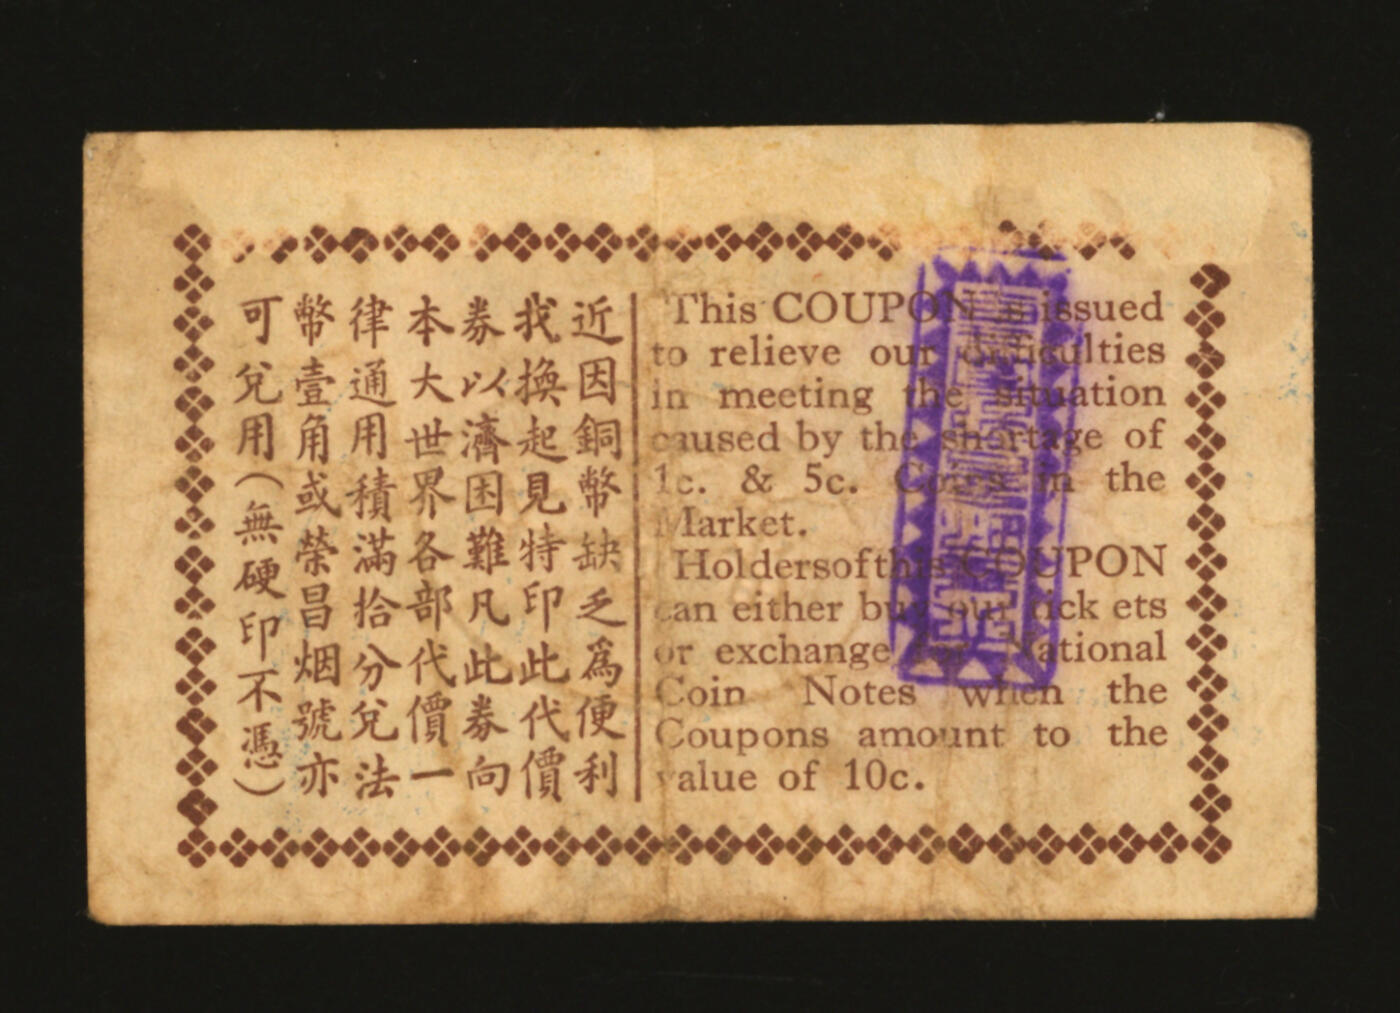 近因銅幣缺乏為便利
找換起見特印此代價
券以濟困難凡此券向
本大世界各部代價一
律通用積滿拾分兌法
幣壹角或榮昌烟號亦
可兌用(無硬印不憑)
This COUPON is issued
to relieve our difficulties
in meeting the situation
caused by the shortage of
1c. & 5c. Coins in the
Market.
Holdersofthis COUPON
can either buy our tick ets
or exchange for National
Coin Notes when the
Coupons amount to the
value of 10c.